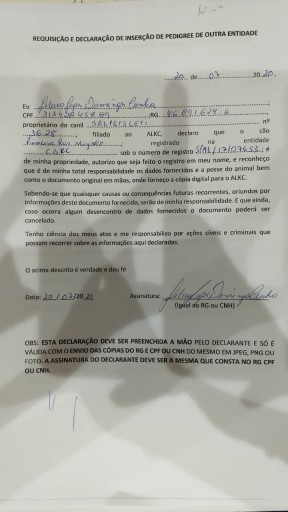 REQUISIÇÃO E DECLARAÇÃO DE INSERÇÃO DE PEDIGREE DE OUTRA ENTIDADE
20 de 07 2020.
Eu
CPF RG
proprietário do canil nº
3628, filiado ao ALKC, declaro que o cão
registrado na entidade
CBKC sob o número de registro
de minha propriedade, autorizo que seja feito o registro em meu nome, e reconheço
que é de minha total responsabilidade os dados fornecidos e a posse do animal bem
como o documento original em mãos, onde forneço a cópia digital para o ALKC.
Sabendo-se que quaisquer causas ou consequências futuras recorrentes, oriundos por
informações deste documento fornecido, serão de minha responsabilidade. E que ainda,
caso ocorra algum desencontro de dados fornecidos o documento poderá ser
cancelado.
Tenho ciência dos meus atos e me responsabilizo por ações cíveis e criminais que
possam recorrer sobre as informações aqui declaradas.
O acima descrito é verdade e dou fé
Data: 20/07/2020 Assinatura:
(igual ao RG ou CNH)
OBS: ESTA DECLARAÇÃO DEVE SER PREENCHIDA A MÃO PELO DECLARANTE E SÓ É
VÁLIDA COM O ENVIO DAS CÓPIAS DO RG E CPF OU CNH DO MESMO EM JPEG, PNG OU
FOTO. A ASSINATURA DO DECLARANTE DEVE SER A MESMA QUE CONSTA NO RG CPF
OU CNH.